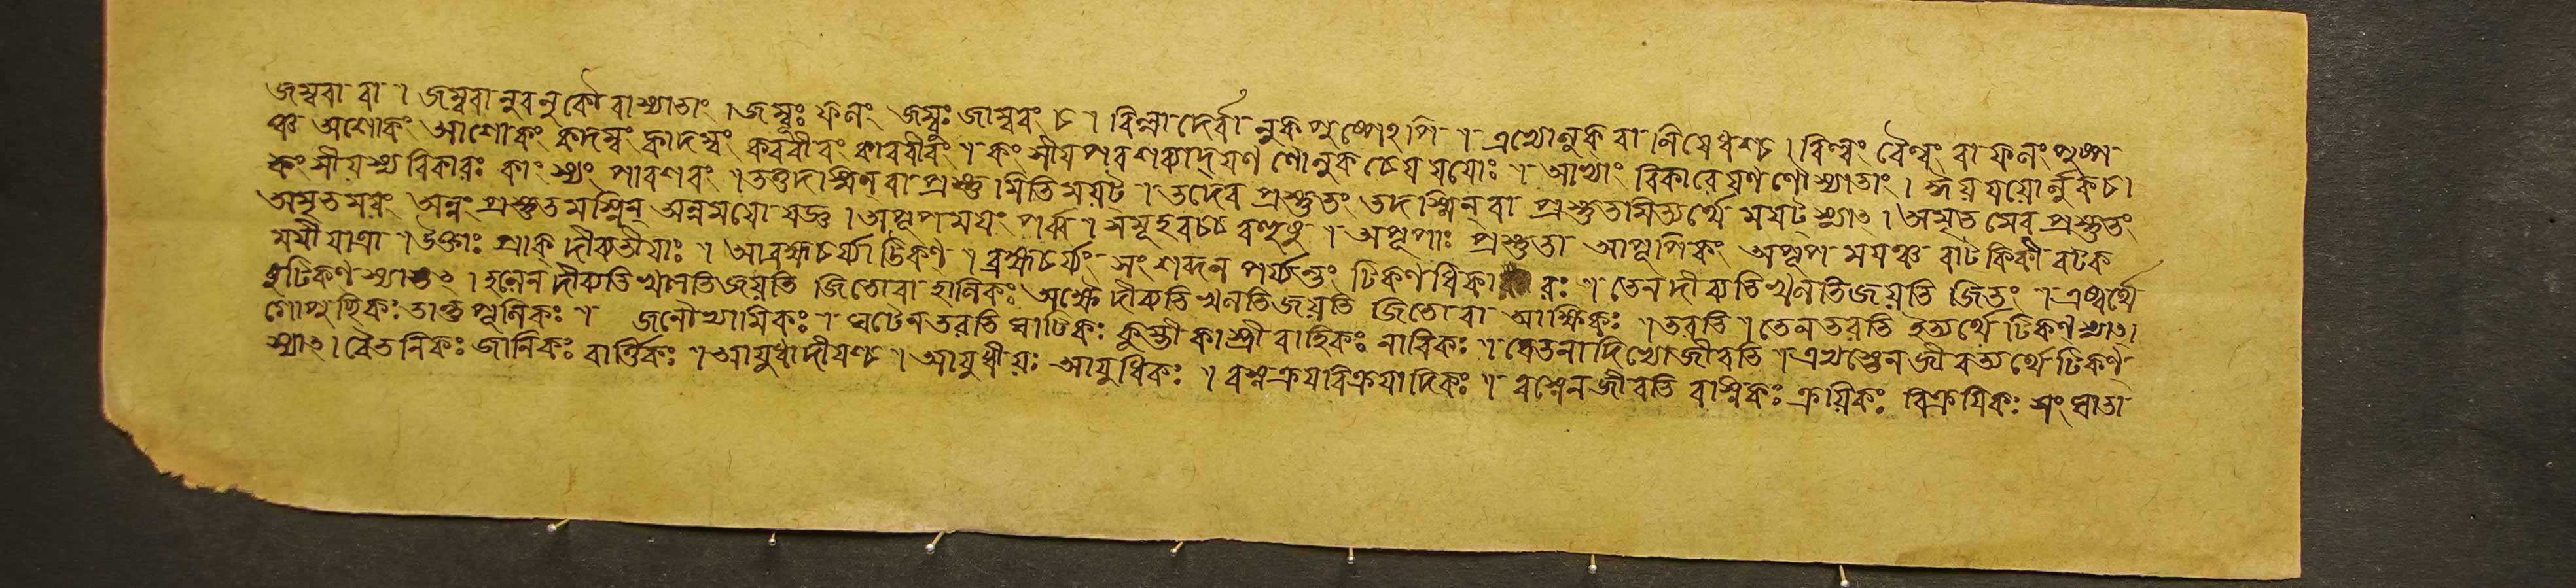 জম্ববা বা । জম্ববা নুবনুকৌ বা স্যাতাং । জম্বূঃ ফলং জম্বুঃ জাম্ববং চ । বিল্বাদের্বা নুক পুষ্পেঽপি । এভ্যো লুক বা নিষেধশ্চ । বিল্বং বৈল্বং বা ফলং পুষ্প
ঞ্চ অশোকং আশোকং কাদম্বং কাদম্বং করবীরং কারবীরং । কংসীয পরশব্যাদ্ যণ ণৌ লুক চেয যযোঃ । আভ্যাং বিকারে যণ ণৌ স্যাতাং । ঈয় যযোর্লুক চ ।
কংসীয়স্য বিকারঃ কাংস্যং পারশবং । তত্তদস্মিন্ বা প্রস্তুতমিতি ময়ট । তদেব প্রস্তুতং তদস্মিন্ বা প্রস্তুতমিত্যর্থে ময়ট্ স্যাৎ । অমৃতমেব প্রস্তুতং
অমৃতময়ং অন্নং প্রস্তুতমস্মিন্ অন্নময়ো যজ্ঞ । অপূপময়ং পর্ব্ব । সমূহবচ্চ বহুষু । অপূপাঃ প্রস্তুতা আপূপিকং অপূপময়ঞ্চ বাটকিকী বটক
ময়ী যাত্রা । উক্তাঃ প্রাক্ দীব্যতীয়াঃ । আব্রহ্মচর্য্যাট্টিকণ্ । ব্রহ্মচর্য্যং সংশব্দন পর্য্যন্তং টিকণধিকারঃ । তেন দীব্যতি খনতি জয়তি জিতং । এষ্বর্থে
ষু টিকণ্ স্যাৎ । হলেন দীব্যতি খনতি জয়তি জিতো বা হালিকঃ অক্ষৈ দীব্যতি খনতি জয়তি জিতো বা আক্ষিকঃ । তরতি । তেন তরতি ইত্যর্থে টিকণ্ স্যাৎ ।
গোপুচ্ছিকঃ তাম্বুলিকঃ । জলৌ গ্যামিকঃ । ঘটেন তরতি ঘাটিকঃ কুম্ভী কাম্ভী বাহিকঃ নাবিকঃ । বেতনাদিভ্যো জীবতি । এভ্যস্তেন জীবত্যর্থে টিকণ্
স্যাৎ । বৈতনিকঃ জালিকঃ বার্ত্তিকঃ । আয়ুধাদীযশ্চ । আয়ুধীয়ঃ আয়ুধিকঃ । বস্নক্রযবিক্রযাদিকঃ । বস্নেন জীবতি বাস্নিকঃ ক্রয়িকঃ বিক্রয়িকঃ সংঘাতা